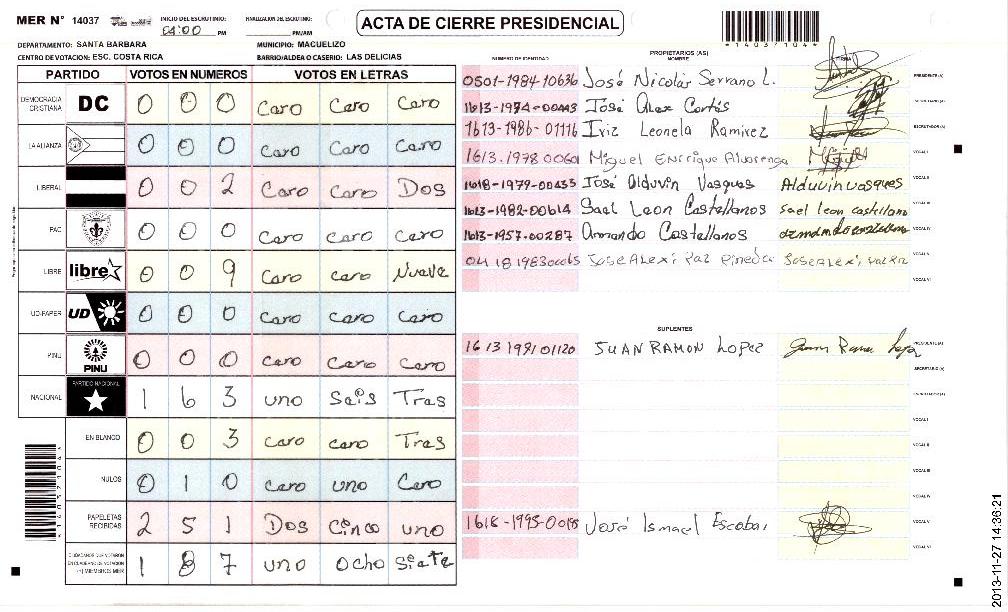 MER N° 14037 INICIO DEL ESCRUTINIO: 04:00 PM FINALIZACION DEL ESCRUTINIO: PM/AM
ACTA DE CIERRE PRESIDENCIAL
*14037104*
DEPARTAMENTO: SANTA BARBARA MUNICIPIO: MACUELIZO
CENTRO DE VOTACION: ESC. COSTA RICA BARRIO/ALDEA O CASERIO: LAS DELICIAS
PROPIETARIOS (AS)
NUMERO DE IDENTIDAD NOMBRE FIRMA
PARTIDO VOTOS EN NUMEROS VOTOS EN LETRAS
DEMOCRACIA CRISTIANA DC 0 0 0 Caro Caro Caro
LA ALIANZA 0 0 0 Caro Caro Caro
LIBERAL 0 0 2 Caro Caro Dos
PAC 0 0 0 Caro Caro Caro
LIBRE libre 0 0 9 Caro caro Nueve
UD-FAPER UD 0 0 0 Caro Caro Caro
PINU PINU 0 0 0 Caro Caro Caro
NACIONAL PARTIDO NACIONAL 1 6 3 uno Sais Tras
EN BLANCO 0 0 3 Caro caro Tras
NULOS 0 1 0 Caro uno Caro
PAPELETAS RECIBIDAS 2 5 1 Dos Cinco uno
CIUDADANOS QUE VOTARON EN CUADERNO DE VOTACION (+) MIEMBROS MER 1 8 7 uno Ocho Siete
0501-1984-10636 José Nicolás Serrano L. PRESIDENTE(A)
1613-1974-00443 José Alex Cortés SECRETARIO(A)
1613-1986-01116 Iriz Leonela Ramirez ESCRUTADOR(A)
1613-1978 0060 Miguel Enrrique Alvarenga VOCAL I
1618-1979-00433 José Alduvin Vasques Alduvin vasques VOCAL II
1623-1982-00614 Sael Leon Castellanos sael leon castellano VOCAL III
1613-1957-00287 Armando Castellanos VOCAL IV
0418 1983 00065 Jose Alexi Paz Pineda VOCAL V
VOCAL VI
SUPLENTES
1613 1991 01120 JUAN RAMON LOPEZ PRESIDENTE(A)
SECRETARIO (A)
ESCRUTADOR (A)
VOCAL I
VOCAL II
VOCAL III
VOCAL IV
1618-1995-00195 José Ismael Escobar VOCAL V
VOCAL VI
2013-11-27 14:36:21